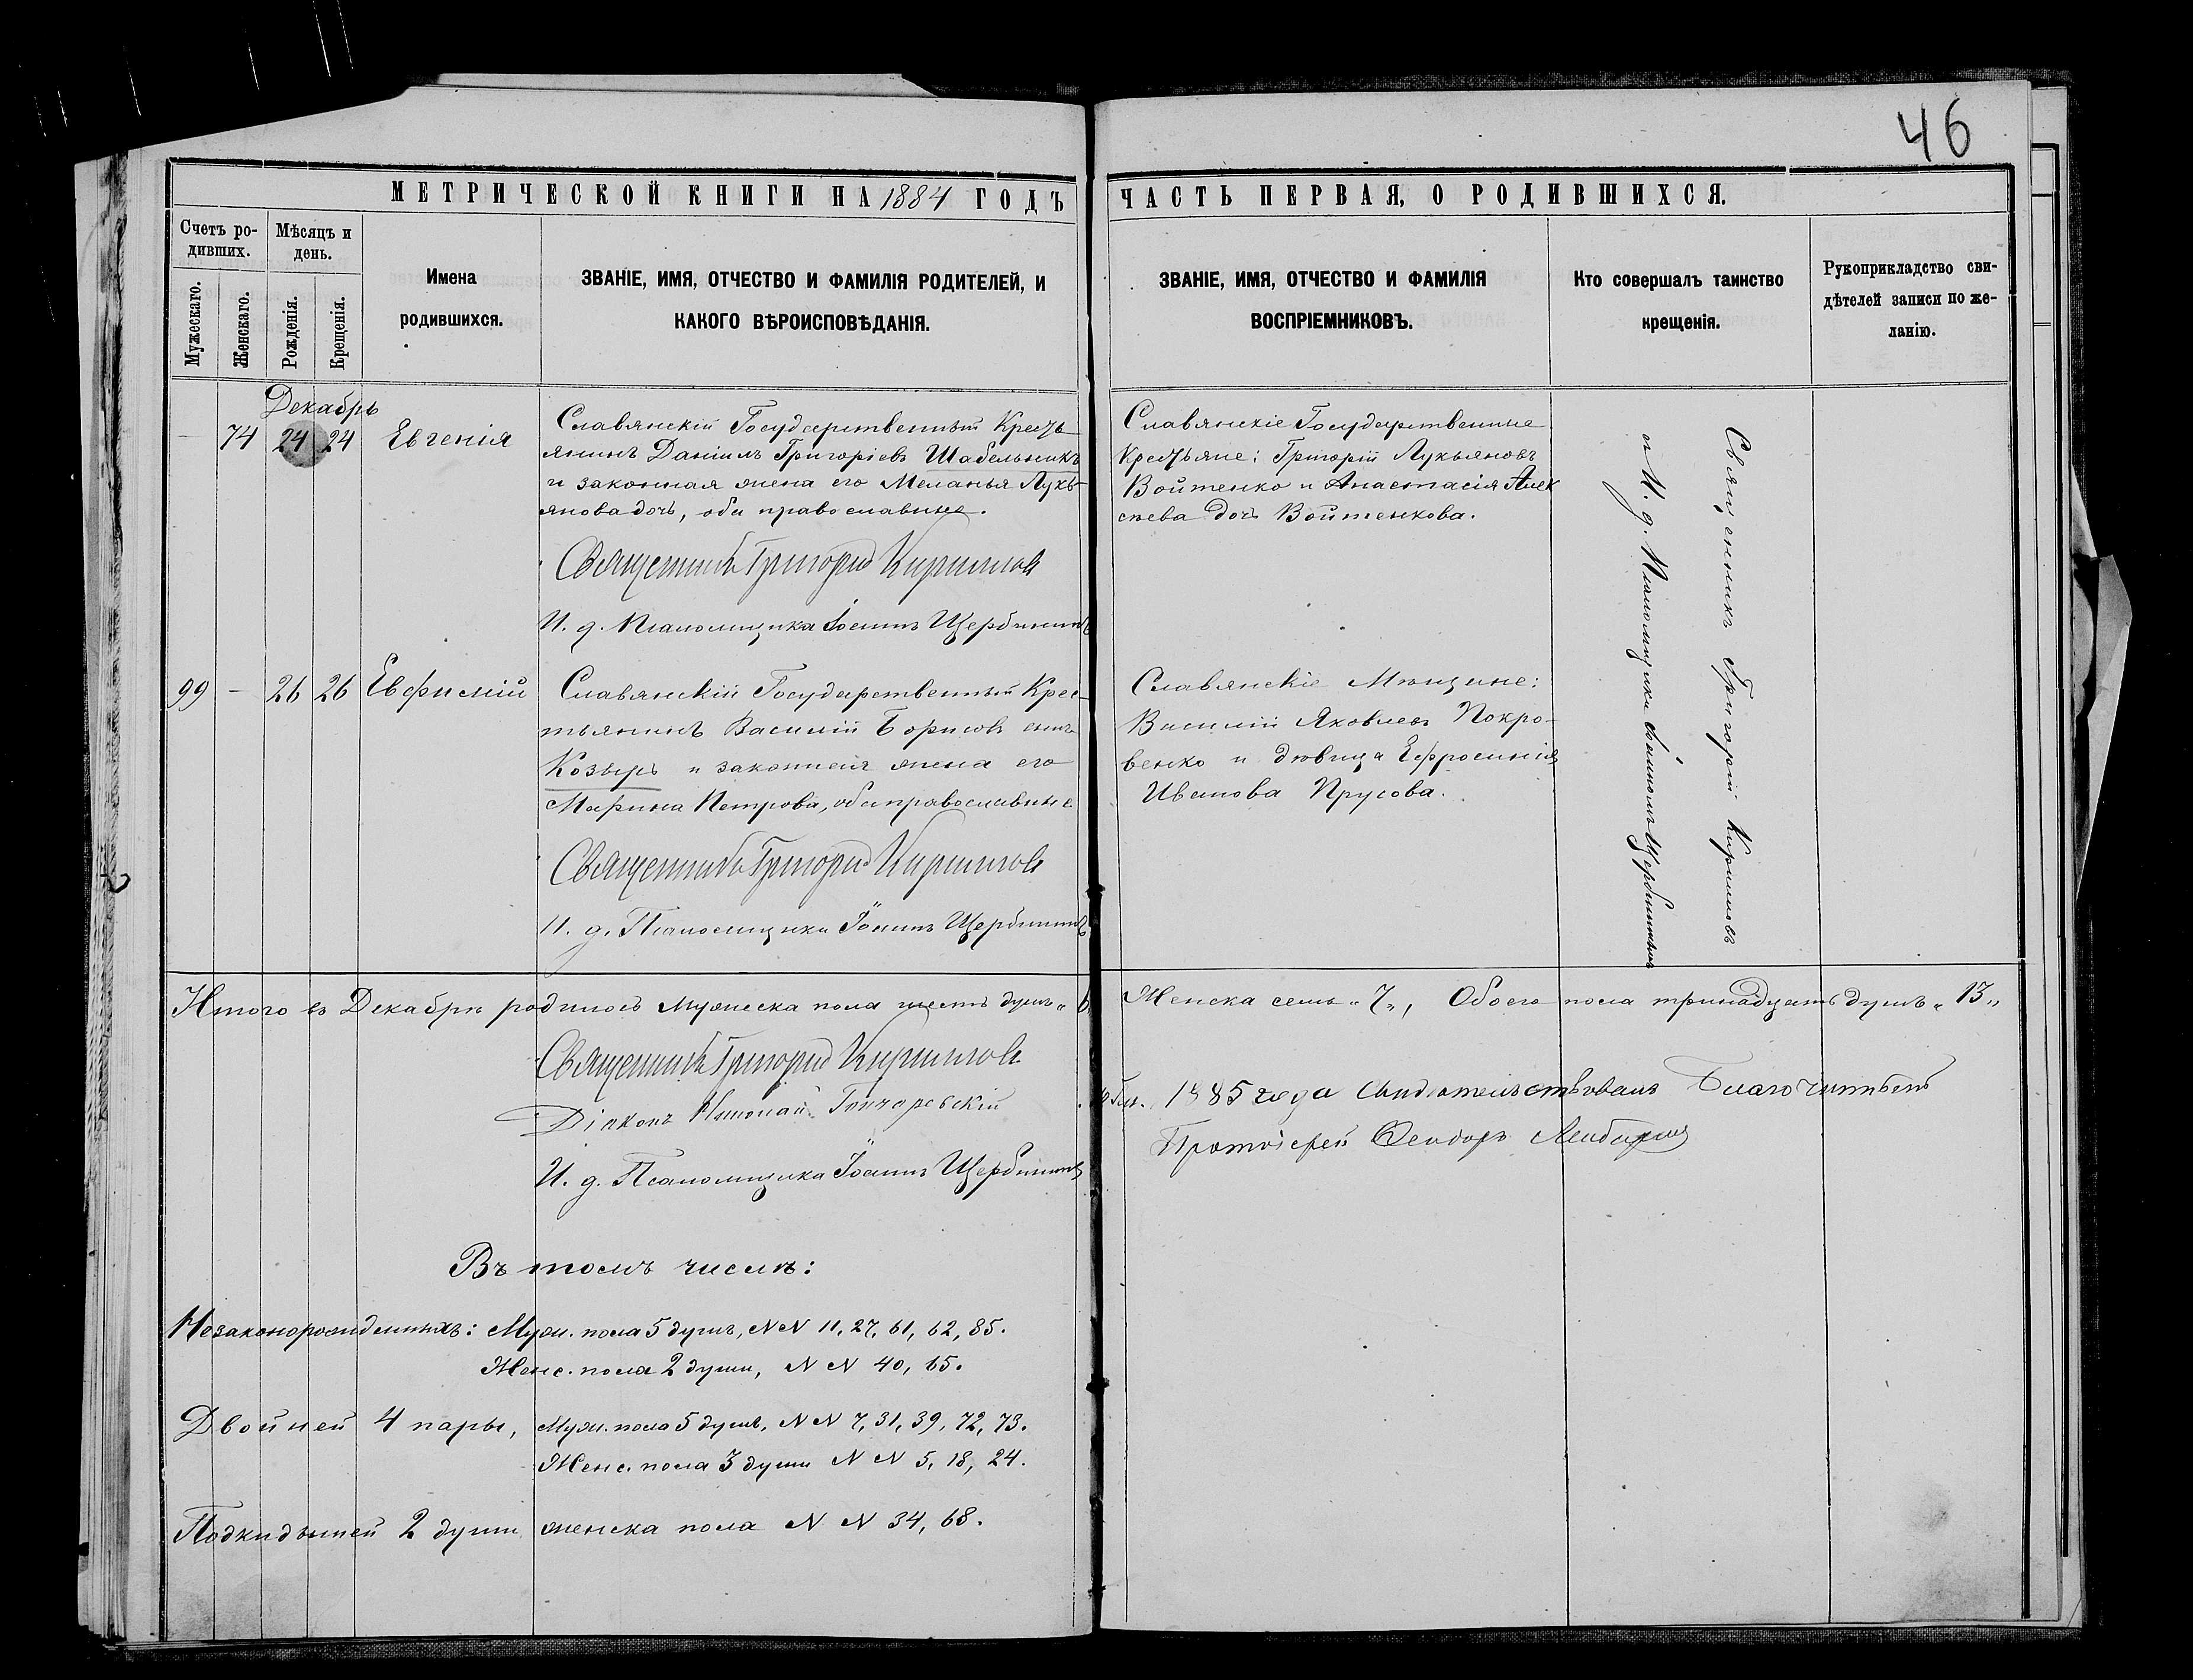 46
МЕТРИЧЕСКОЙ КНИГИ НА 1884 ГОДЪ
ЧАСТЬ ПЕРВАЯ, О РОДИВШИХСЯ.
Счетъ ро-
дивших.
Мужескаго.
Женскаго.
Мѣсяцъ и
день.
Рожденія.
Крещенія.
Имена
родившихся.
ЗВАНІЕ, ИМЯ, ОТЧЕСТВО И ФАМИЛІЯ РОДИТЕЛЕЙ, И
КАКОГО ВѢРОИСПОВѢДАНІЯ.
ЗВАНІЕ, ИМЯ, ОТЧЕСТВО И ФАМИЛІЯ
ВОСПРІЕМНИКОВЪ.
Кто совершалъ таинство
крещенія.
Рукоприкладство сви-
дѣтелей записи по же-
ланію.
Декабрь
— 74 24 24 Евгенія
Славянскій Государственный Кресть
янинъ Даніилъ Григоріевъ Шабельникъ
и законная жена его Меланья Лукь-
янова дочь, оба православные.
Священникъ Григорій Кирилловъ
И. д. Псаломщика Іоаннъ Щербининъ
Славянскіе Государственные
Крестьяне: Григорій Лукьяновъ
Войтенко и Анастасія Алек
сѣева дочь Войтенкова.
99 — 26 26 Евфимій
Славянскій Государственный Крес-
тьянинъ Василій Борисовъ сынъ
Козырь и законная жена его
Марина Петрова, оба православные
Священникъ Григорій Кирилловъ
И. д. Псаломщика Іоаннъ Щербининъ
Славянскіе Мѣщане:
Василій Яковлевъ Покро-
венко и дѣвица Ефросинія
Иванова Прусова.
Священникъ Григорій Кирилловъ
с И. д. Псаломщика Іоанномъ Щербининымъ
Итого въ Декабрѣ родилось Мужеска пола шесть душъ „ 6
Женска семь „ 7 „, Обоего пола тринадцать душъ „ 13 „
Священникъ Григорій Кирилловъ
Діаконъ Николай Гончаревскій
И. д. Псаломщика Іоаннъ Щербининъ
1885 года Свидѣтельствовалъ Благочинный
Протоіерей Ѳеодоръ
Въ томъ числѣ:
Незаконорожденныхъ: Муж. пола 5 душъ, NN 11, 27, 61, 62, 85.
Женс. пола 2 души, N N 40, 65.
Двойней 4 пары, Муж. пола 5 душъ, N N 7, 31, 39, 72, 73.
Женс. пола 3 души N N 5, 18, 24.
Подкидышей 2 души женска пола N N 34, 68.